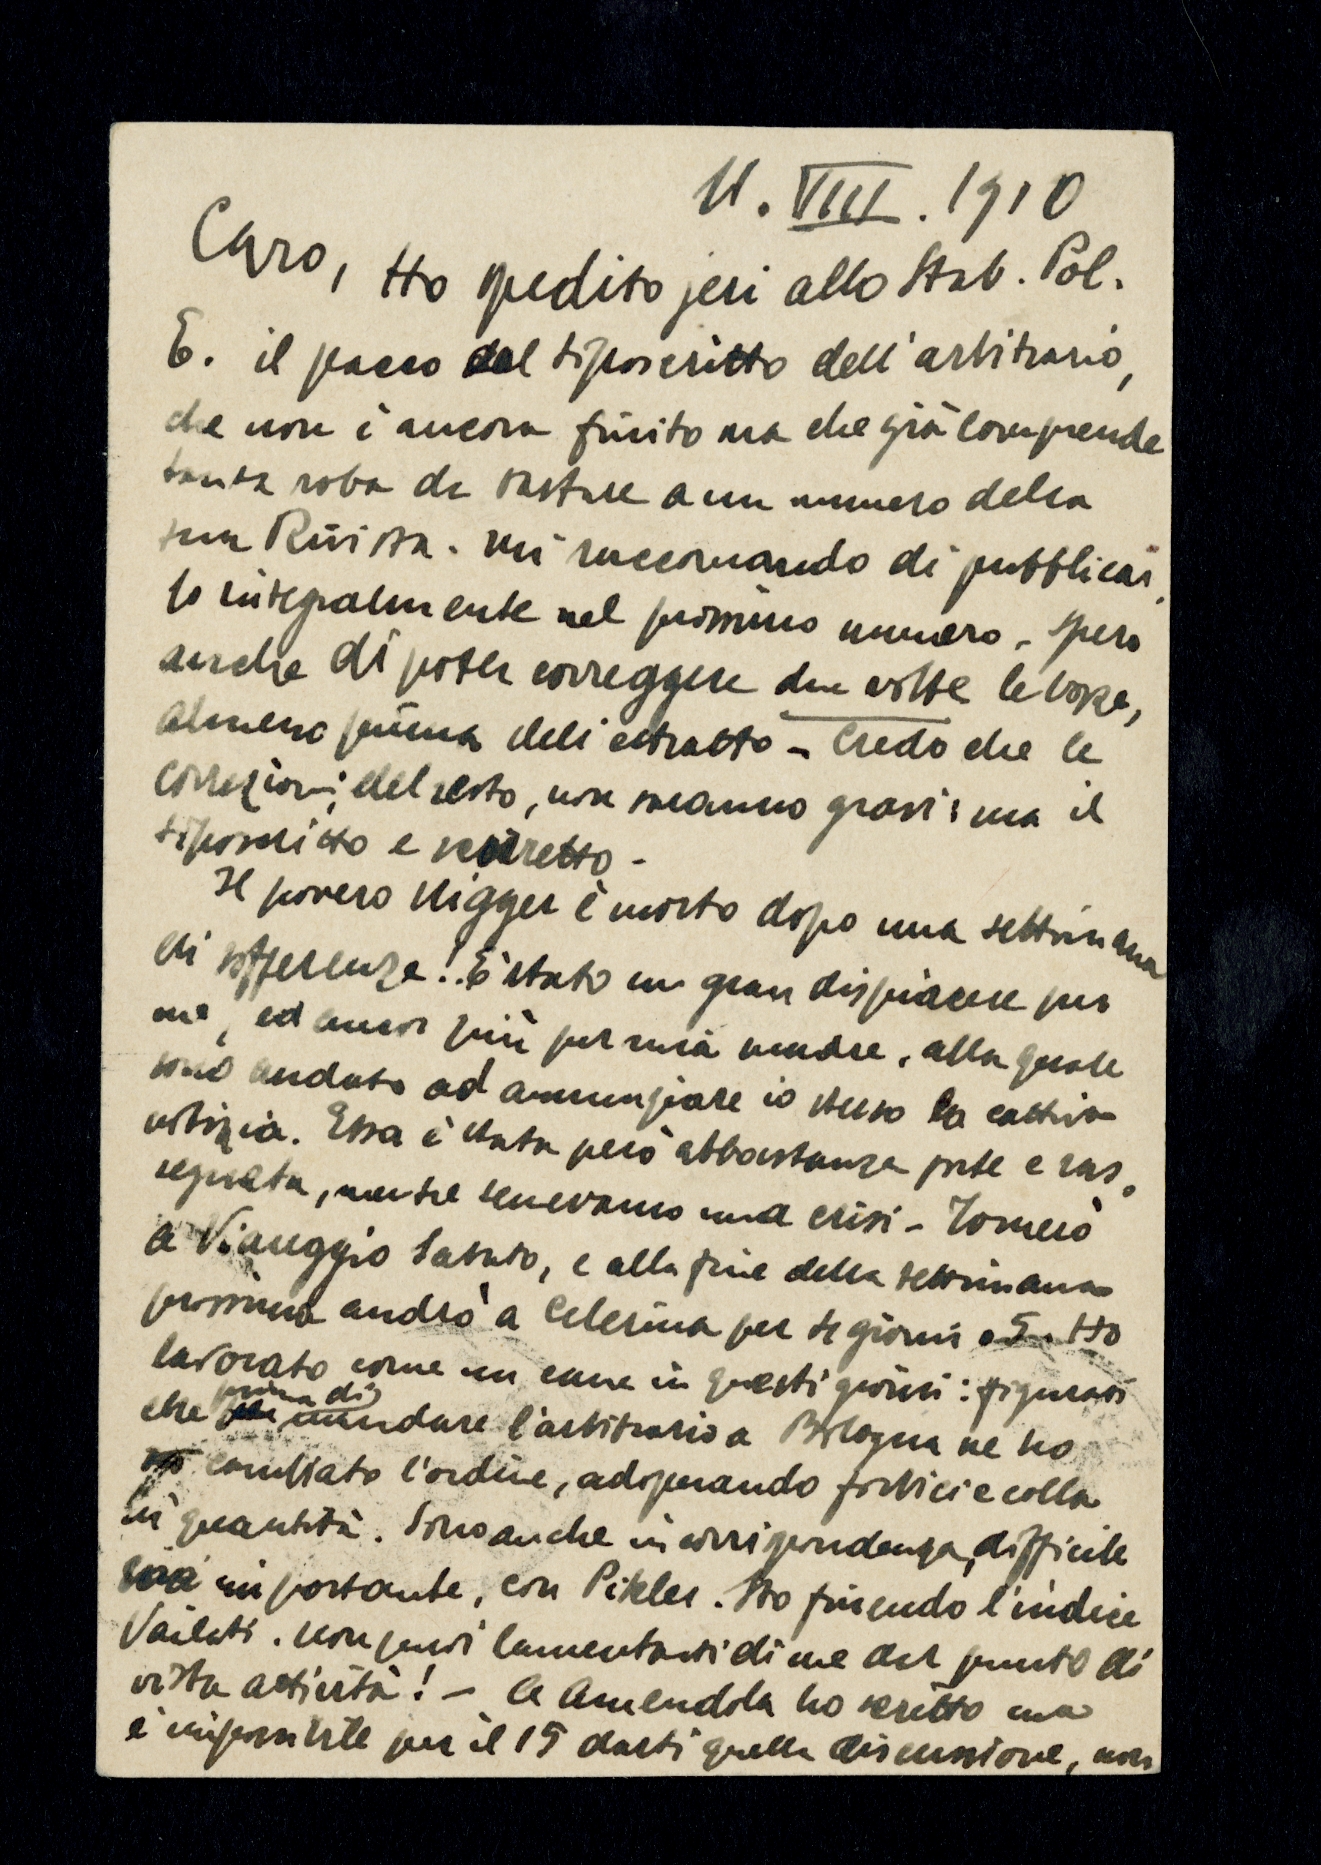 11. VIII. 1910
Caro, Ho spedito jeri allo Stab. Pol.
E. il pacco del tiposcritto dell'arbitrario,
che non è ancora finito ma che già comprende
tanta roba da bastare a un numero della
tua Rivista. Mi raccomando di pubblicar,
lo integralmente nel prossimo numero. Spero
anche di poter correggere due volte le bozze,
almeno prima dell'estratto - Credo che le
correzioni, del resto, non saranno gravi: ma il
tiposcritto è scorretto -
Il povero Nigger è morto dopo una settimana
di sofferenze! È stato un gran dispiacere per
me, ed ancor più per mia madre, alla quale
sono andato ad annunziare io stesso la cattiva
notizia. Essa è stata però abbastanza forte e ras,
segnata, mentre temevamo una crisi - Tornerò
a Viareggio Sabato, e alla fine della settimana
prossima andrò a Celerina per 4 giorni o 5. Ho
lavorato come un cane in questi giorni: figurati
che prima di mandare l'arbitrario a Bologna ne ho
cambiato l'ordine, adoperando forbici e colla
in quantità. Sono anche in corrispondenza, difficile
ma importante, con Pikler. Sto finendo l'indice
Vailati. Non puoi lamentarti di me dal punto di
vista attività! - A Amendola ho scritto ma
è impossibile per il 15 darti quella discussione, non